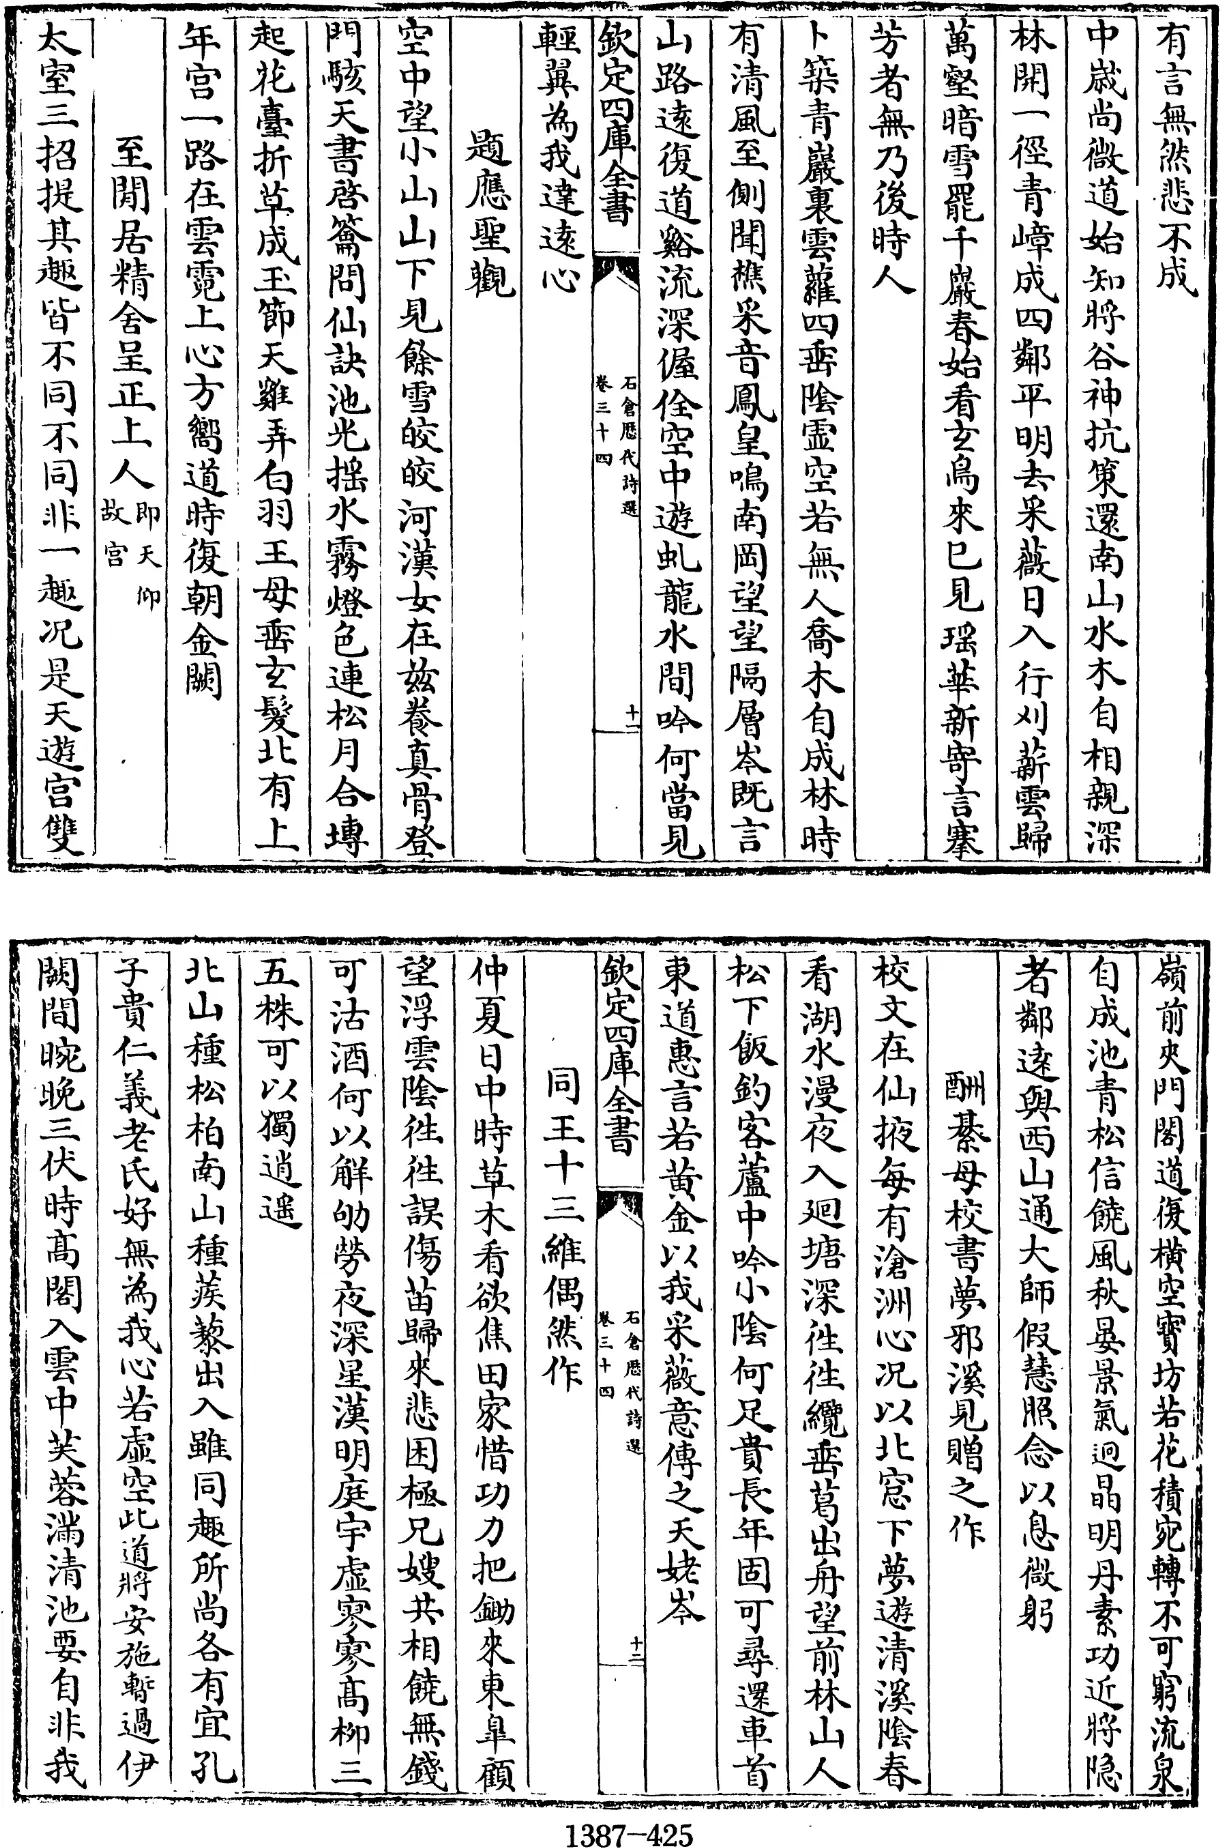 有言無然悲不成
中嵗尚微道始知將谷神抗策還南山水木自相親深
林開一徑青嶂成四鄰平明去采薇日入行刈薪雲歸
萬壑暗雪罷千巖春始看玄鳥來已見瑶華新寄言搴
芳者無乃後時人
卜築青巖裏雲蘿四垂陰虛空若無人喬木自成林時
有清風至側聞樵采音鳳皇鳴南岡望望隔層岑既言
山路遠復道谿流深偓佺空中遊虬龍水間吟何當見
欽定四庫全書
石倉歴代詩選
卷三十四
十一
輕翼為我達遠心
題應聖觀
空中望小山山下見餘雪皎皎河漢女在兹養真骨登
門駭天書啓籥問仙訣池光揺水霧燈色連松月合塼
起花臺折草成玉節天雞弄白羽王母垂玄髮北有上
年宫一路在雲霓上心方嚮道時復朝金闕
至閒居精舍呈正上人即天仰
故宫
太室三招提其趣皆不同不同非一趣况是天遊宫雙
嶺前夾門閣道復横空寳坊若花積宛轉不可窮流泉
自成池青松信饒風秋晏景氣迥晶明丹素功近將隐
者鄰遠與西山通大師假慧照念以息微躬
酬綦母校書夢邪溪見贈之作
校文在仙掖每有滄洲心况以北窓下夢遊清溪隂春
看湖水漫夜入廻塘深徃徃纜垂葛出舟望前林山人
松下飯釣客蘆中吟小隂何足貴長年固可尋還車首
東道惠言若黄金以我采薇意傳之天姥岑
欽定四庫全書
石倉歴代詩選
卷三十四
十二
同王十三維偶然作
仲夏日中時草木看欲焦田家惜功力把鋤來東臯顧
望浮雲隂徃徃誤傷苗歸來悲困極兄嫂共相饒無錢
可沽酒何以解劬勞夜深星漢明庭宇虚寥寥髙栁三
五株可以獨逍遥
北山種松柏南山種蒺藜出入雖同趣所尚各有宜孔
子貴仁義老氏好無為我心若虚空此道將安施暫過伊
闕間晼晚三伏時髙閣入雲中芙蓉滿清池要自非我
1387—425